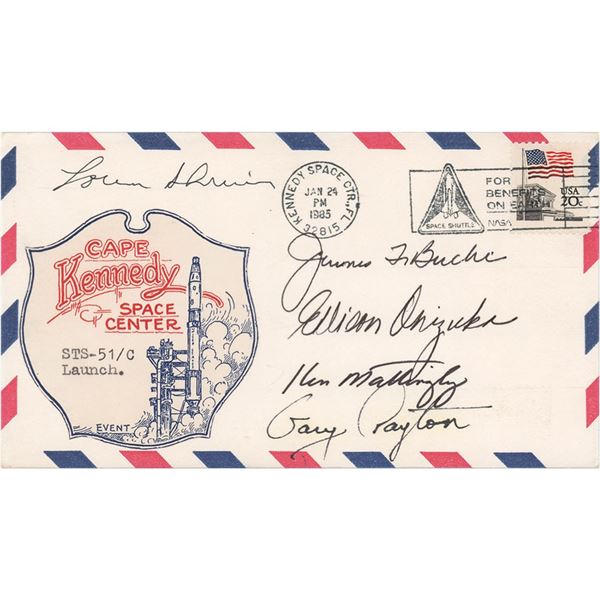 Loren Shriver
KENNEDY SPACE CTR., FL
JAN 24
PM
1985
32815
SPACE SHUTTLE
FOR
BENEFITS
ON EARTH
NASA
USA
20c
CAPE
Kennedy
SPACE
CENTER
STS-51/C
Launch.
EVENT
James F. Buchli
Ellison Onizuka
Ken Mattingly
Gary Payton